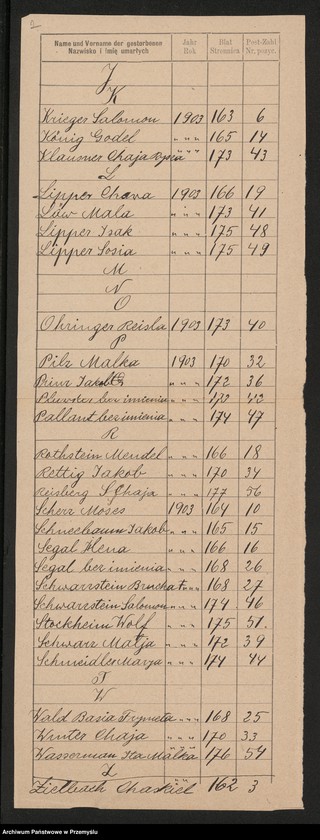 Name und Vorname der gestorbenen Jahr Blat Post-Zahl
Nazwisko i imię umarłych Rok Stronnica Nr. pozyc.
J
K
Krieger Salomon 1903 163 6
König Godel " " " 165 14
Klausner Chaja Ryfka " " " 173 43
L
Lipper Chava 1903 166 19
Löw Mala " " " 173 41
Lipper Isak " " " 175 48
Lipper Sosia " " " 175 49
M
N
O
Ohringer Reisla 1903 173 40
P
Pilz Malka 1903 170 32
Prinz Jakob " " " 172 36
bez imienia " " " 172
Pallant bez imienia " " " 174 47
R
Rothstein Mendel " " " 166 18
Rettig Jakob " " " 170 34
Reisberg S. Chaja " " " 177 56
Scherz Moses 1903 164 10
Schneebaum Jakob " " " 165 15
Segal Hena " " " 166 16
Segal bez imienia " " " 168 26
Schwarzstein Bracha " " " 168 27
Schwarzstein Salomon " " " 174 46
Stockheim Wolf " " " 175 51.
Schwarz Matja " " " 172 39
Schneidler Marya " " " 174 44
T
W
Wald Basia " " " 168 25
Winter Chaja " " " 170 33
Wasserman Ita Malka " " " 176 54
Z
Zielbach Chaskiel " " 162 3
Archiwum Państwowe w Przemyślu